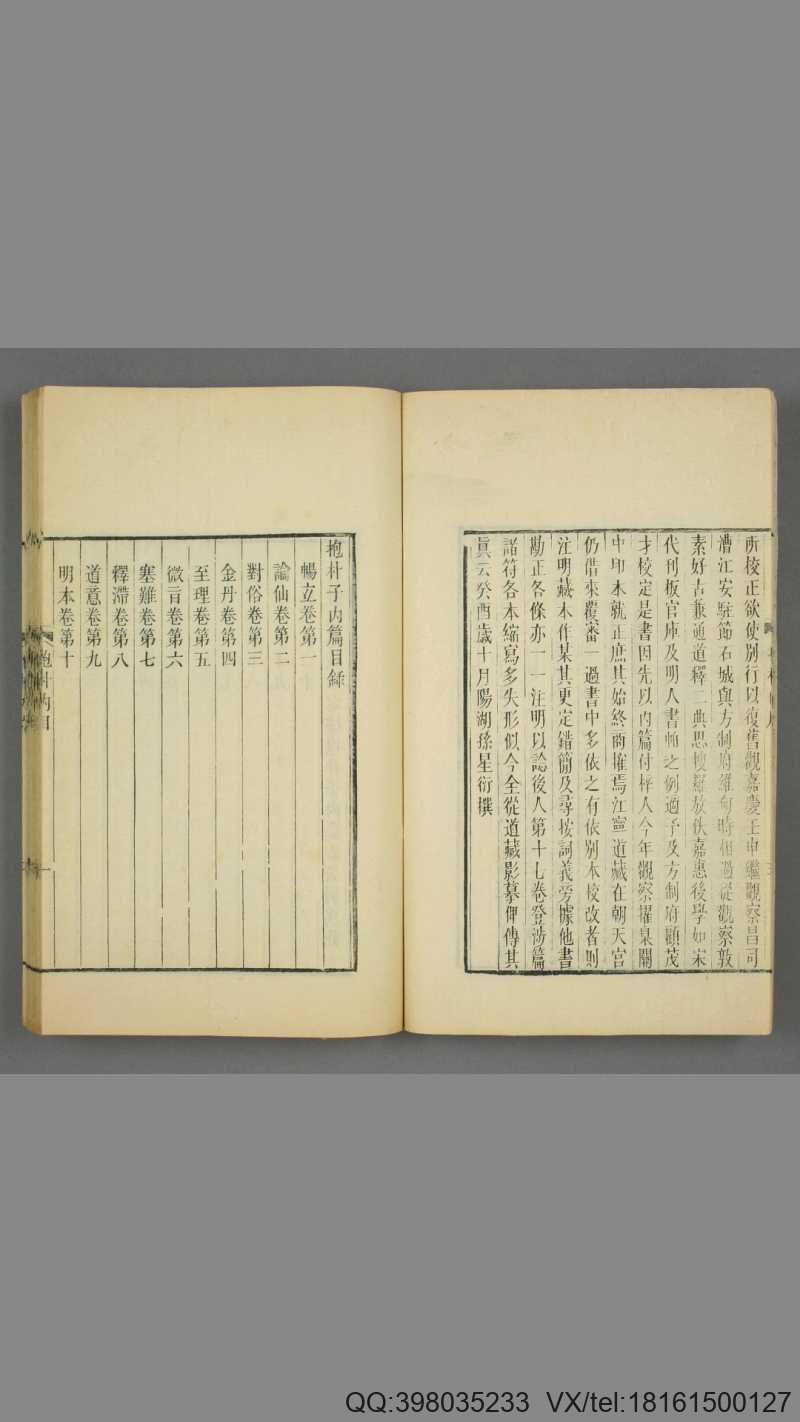 所校正欲使別行以復舊觀嘉慶壬申繼觀察昌司
漕江安駐節石城與方制府維甸時相過從觀察敦
素好古兼通道釋二典思搜羅放佚嘉惠後學如宋
代刊板官庫及明人書帕之例適予及方制府顧茂
才校定是書因先以內篇付梓人今年觀察擢臬關
中印本就正庶其始終商搉焉江寧道藏在朝天宮
仍借來覆審一過書中多依之有依別本校改者則
注明藏本作某其更定錯簡及尋按詞義旁據他書
勘正各條亦一一注明以諗後人第十七卷登涉篇
諸符各本縮寫多失形似今全從道藏影摹俾傳其
眞云癸酉歲十月陽湖孫星衍撰
抱朴子內篇目錄
暢玄卷第一
論仙卷第二
對俗卷第三
金丹卷第四
至理卷第五
微旨卷第六
塞難卷第七
釋滯卷第八
道意卷第九
明本卷第十
抱朴內目
一
QQ:398035233 VX/tel:18161500127